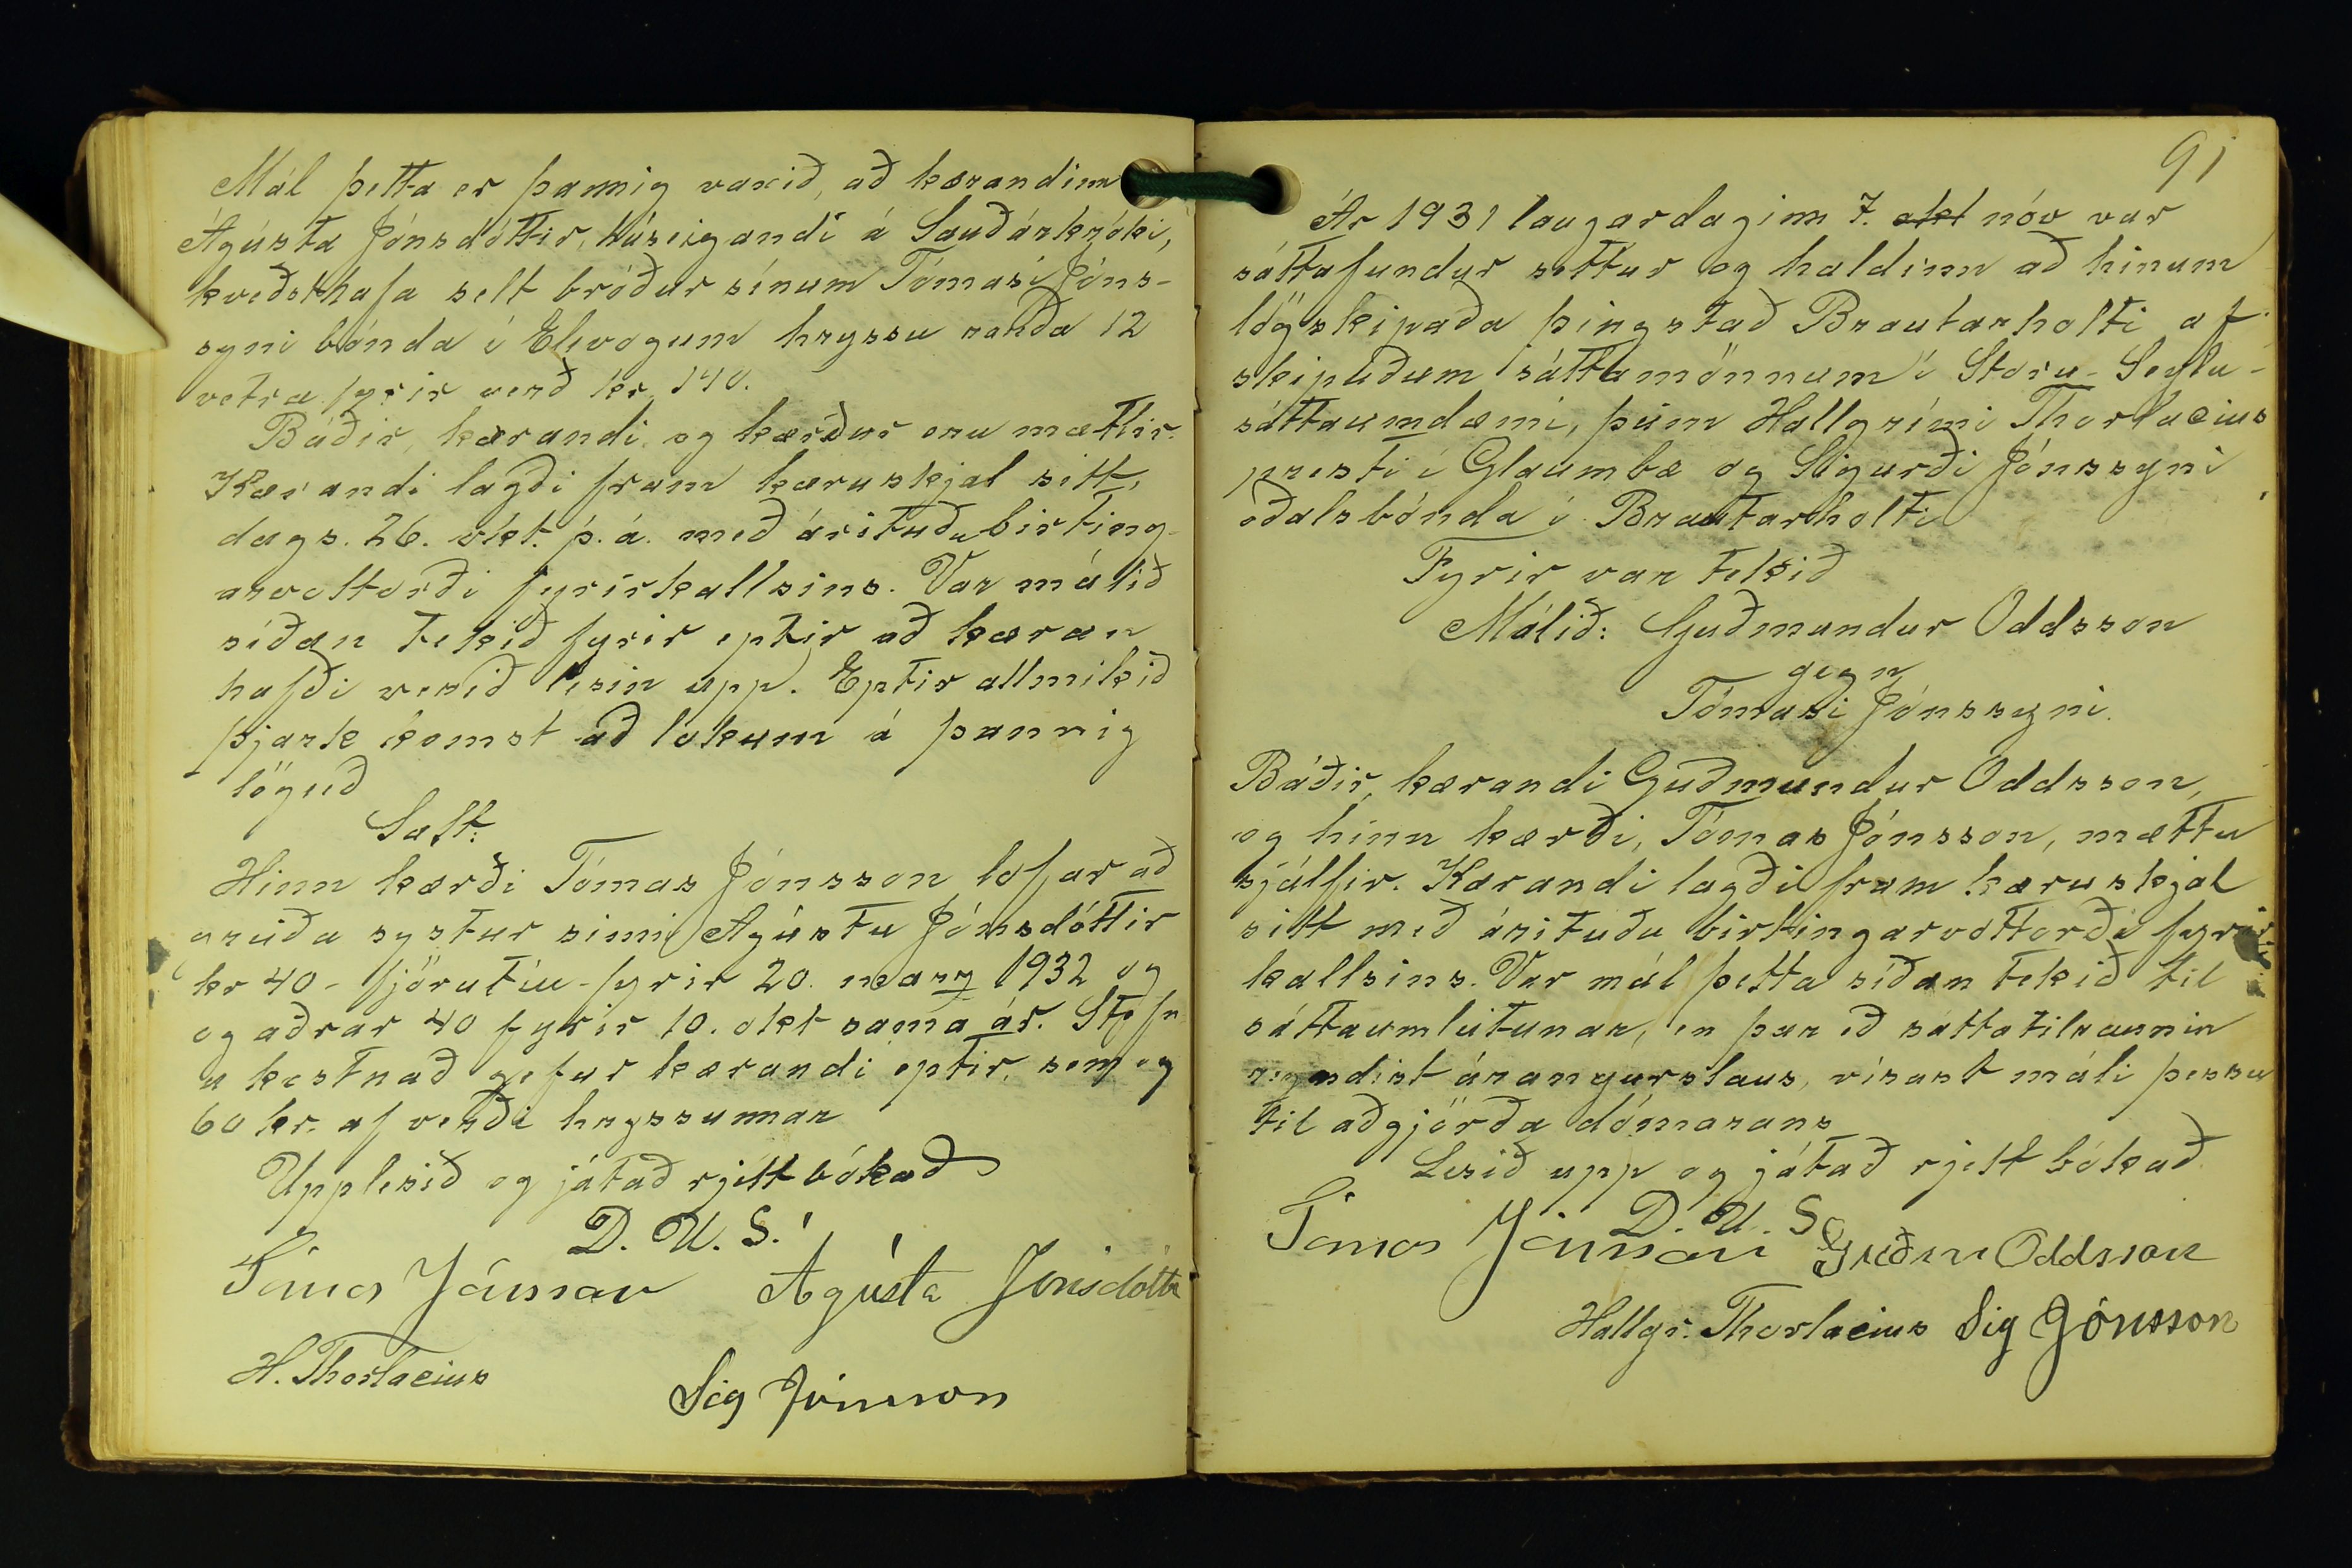 Mál þetta er þannig vaxið, að kærandinn
Ágústa Jónsdóttir, húseigandi á Sauðárkróki,
kveðst hafa selt bróður sínum Tómasi Jóns-
syni bónda í Elivogum hryssu rauða 12
vetra fyrir verð kr. 140.
Báðir, kærandi og kærður eru mættir.
Kærandi lagði fram kæruskjal sitt,
dags. 26. okt. þ. á. með árituðu birting-
arvottorði fyrirkallsins. Var málið
síðan tekið fyrir eptir að kæran
hafði verið lesin upp. Eptir allmikið
þjark komst að lokum á þannig
löguð
Sátt:
Hinn kærði Tómas Jónsson lofar að
greiða systur sinni Ágústu Jónsdóttir
kr 40 - fjörutíu - fyrir 20. marz 1932 og
og aðrar 40 fyrir 10. okt sama ár. Stefn
u kostnað gefur kærandi eptir, sem og
60 kr. af verði hryssunnar
Upplesið og játað rjett bókað
D. U. S.
Tómas Jónsson Ágústa Jónsdóttir
H. Thorlacius
Sig Jónsson
91
Ár 1931 laugardaginn 7. okt nóv var
sáttafundur settur og haldinn að hinum
lögskipaða þingstað Brautarholti af
skipuðum sáttamönnum í Stóru-Seylu-
sáttaumdæmi, þeim Hallgrími Thorlacius
presti í Glaumbæ og Sigurði Jónssyni
óðalsbónda í Brautarholti
Fyrir var tekið
Málið: Guðmundur Oddsson
gegn
Tómasi Jónssyni.
Báðir, kærandi Guðmundur Oddsson,
og hinn kærði, Tómas Jónsson, mættu
sjálfir. Kærandi lagði fram kæruskjal
sitt með árituðu birtingarvottorði fyrir-
kallsins. Var mál þetta síðan tekið til
sáttaumleitunar, en þar eð sáttatilraunin
reyndist árangurslaus, vísast máli þessu
til aðgjörða dómarans
Lesið upp og játað rjett bókað.
D. U. S
Tómas Jónsson Guðm Oddsson
Hallgr. Thorlacius Sig Jónsson